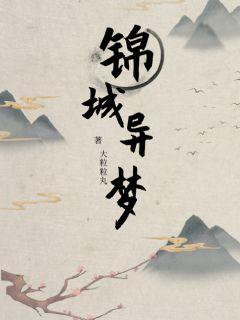 锦城异梦
大粒粒丸 著